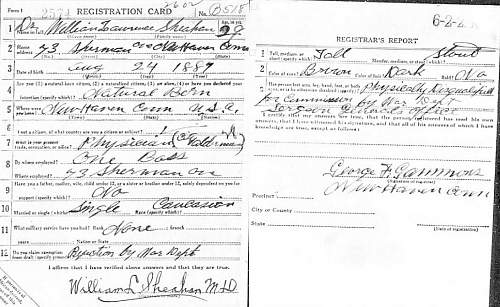 Form 1
REGISTRATION CARD
No.
1 Name in full Dr. William Lawrence Sheahan
Age, in yrs. 29
2 Home address 73 Sherman Ave New Haven Conn
3 Date of birth Aug 24 1889
4 Are you (1) a natural-born citizen, (2) a naturalized citizen, (3) an alien, (4) or have you declared your
intention (specify which)? Natural Born
5 Where were you born? New Haven Conn U.S.A.
(Town) (State) (Nation)
6 If not a citizen, of what country are you a citizen or subject?
7 What is your present trade, occupation, or office? Physician
8 By whom employed? One Boss
Where employed? 73 Sherman ave
9 Have you a father, mother, wife, child under 12, or a sister or brother under 12, solely dependent on you for
support (specify which)? No
10 Married or single (which)? Single Race (specify which)? Caucasian
11 What military service have you had? Rank None ; branch
years Nation or State
12 Do you claim exemption from draft (specify grounds)? Rejection by War Dept
I affirm that I have verified above answers and that they are true.
William L. Sheahan M.D.
REGISTRAR'S REPORT
1 Tall, medium, or short (specify which)? Tall Slender, medium, or stout (which)? Stout
2 Color of eyes? Brown Color of hair? Dark Bald? No
3 Has person lost arm, leg, hand, foot, or both eyes, or is he otherwise disabled (specify)? Physically disqualified
for Commission by War Dept
I certify that my answers are true, that the person registered has read his own
answers, that I have witnessed his signature, and that all of his answers of which I have
knowledge are true, except as follows:
George F. Gammons
(Signature of registrar)
New Haven Conn
Precinct
City or County
State
(Date of registration)